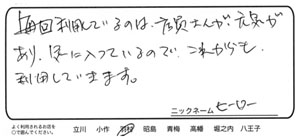 毎回利用しているのは、店員さんが、元気が
あり、気に入っているので、これからも
利用していきます。
ニックネーム ヒーロー
よく利用されるお店を
○で囲んでください。 立川 小作 羽村 昭島 青梅 高幡 堀之内 八王子